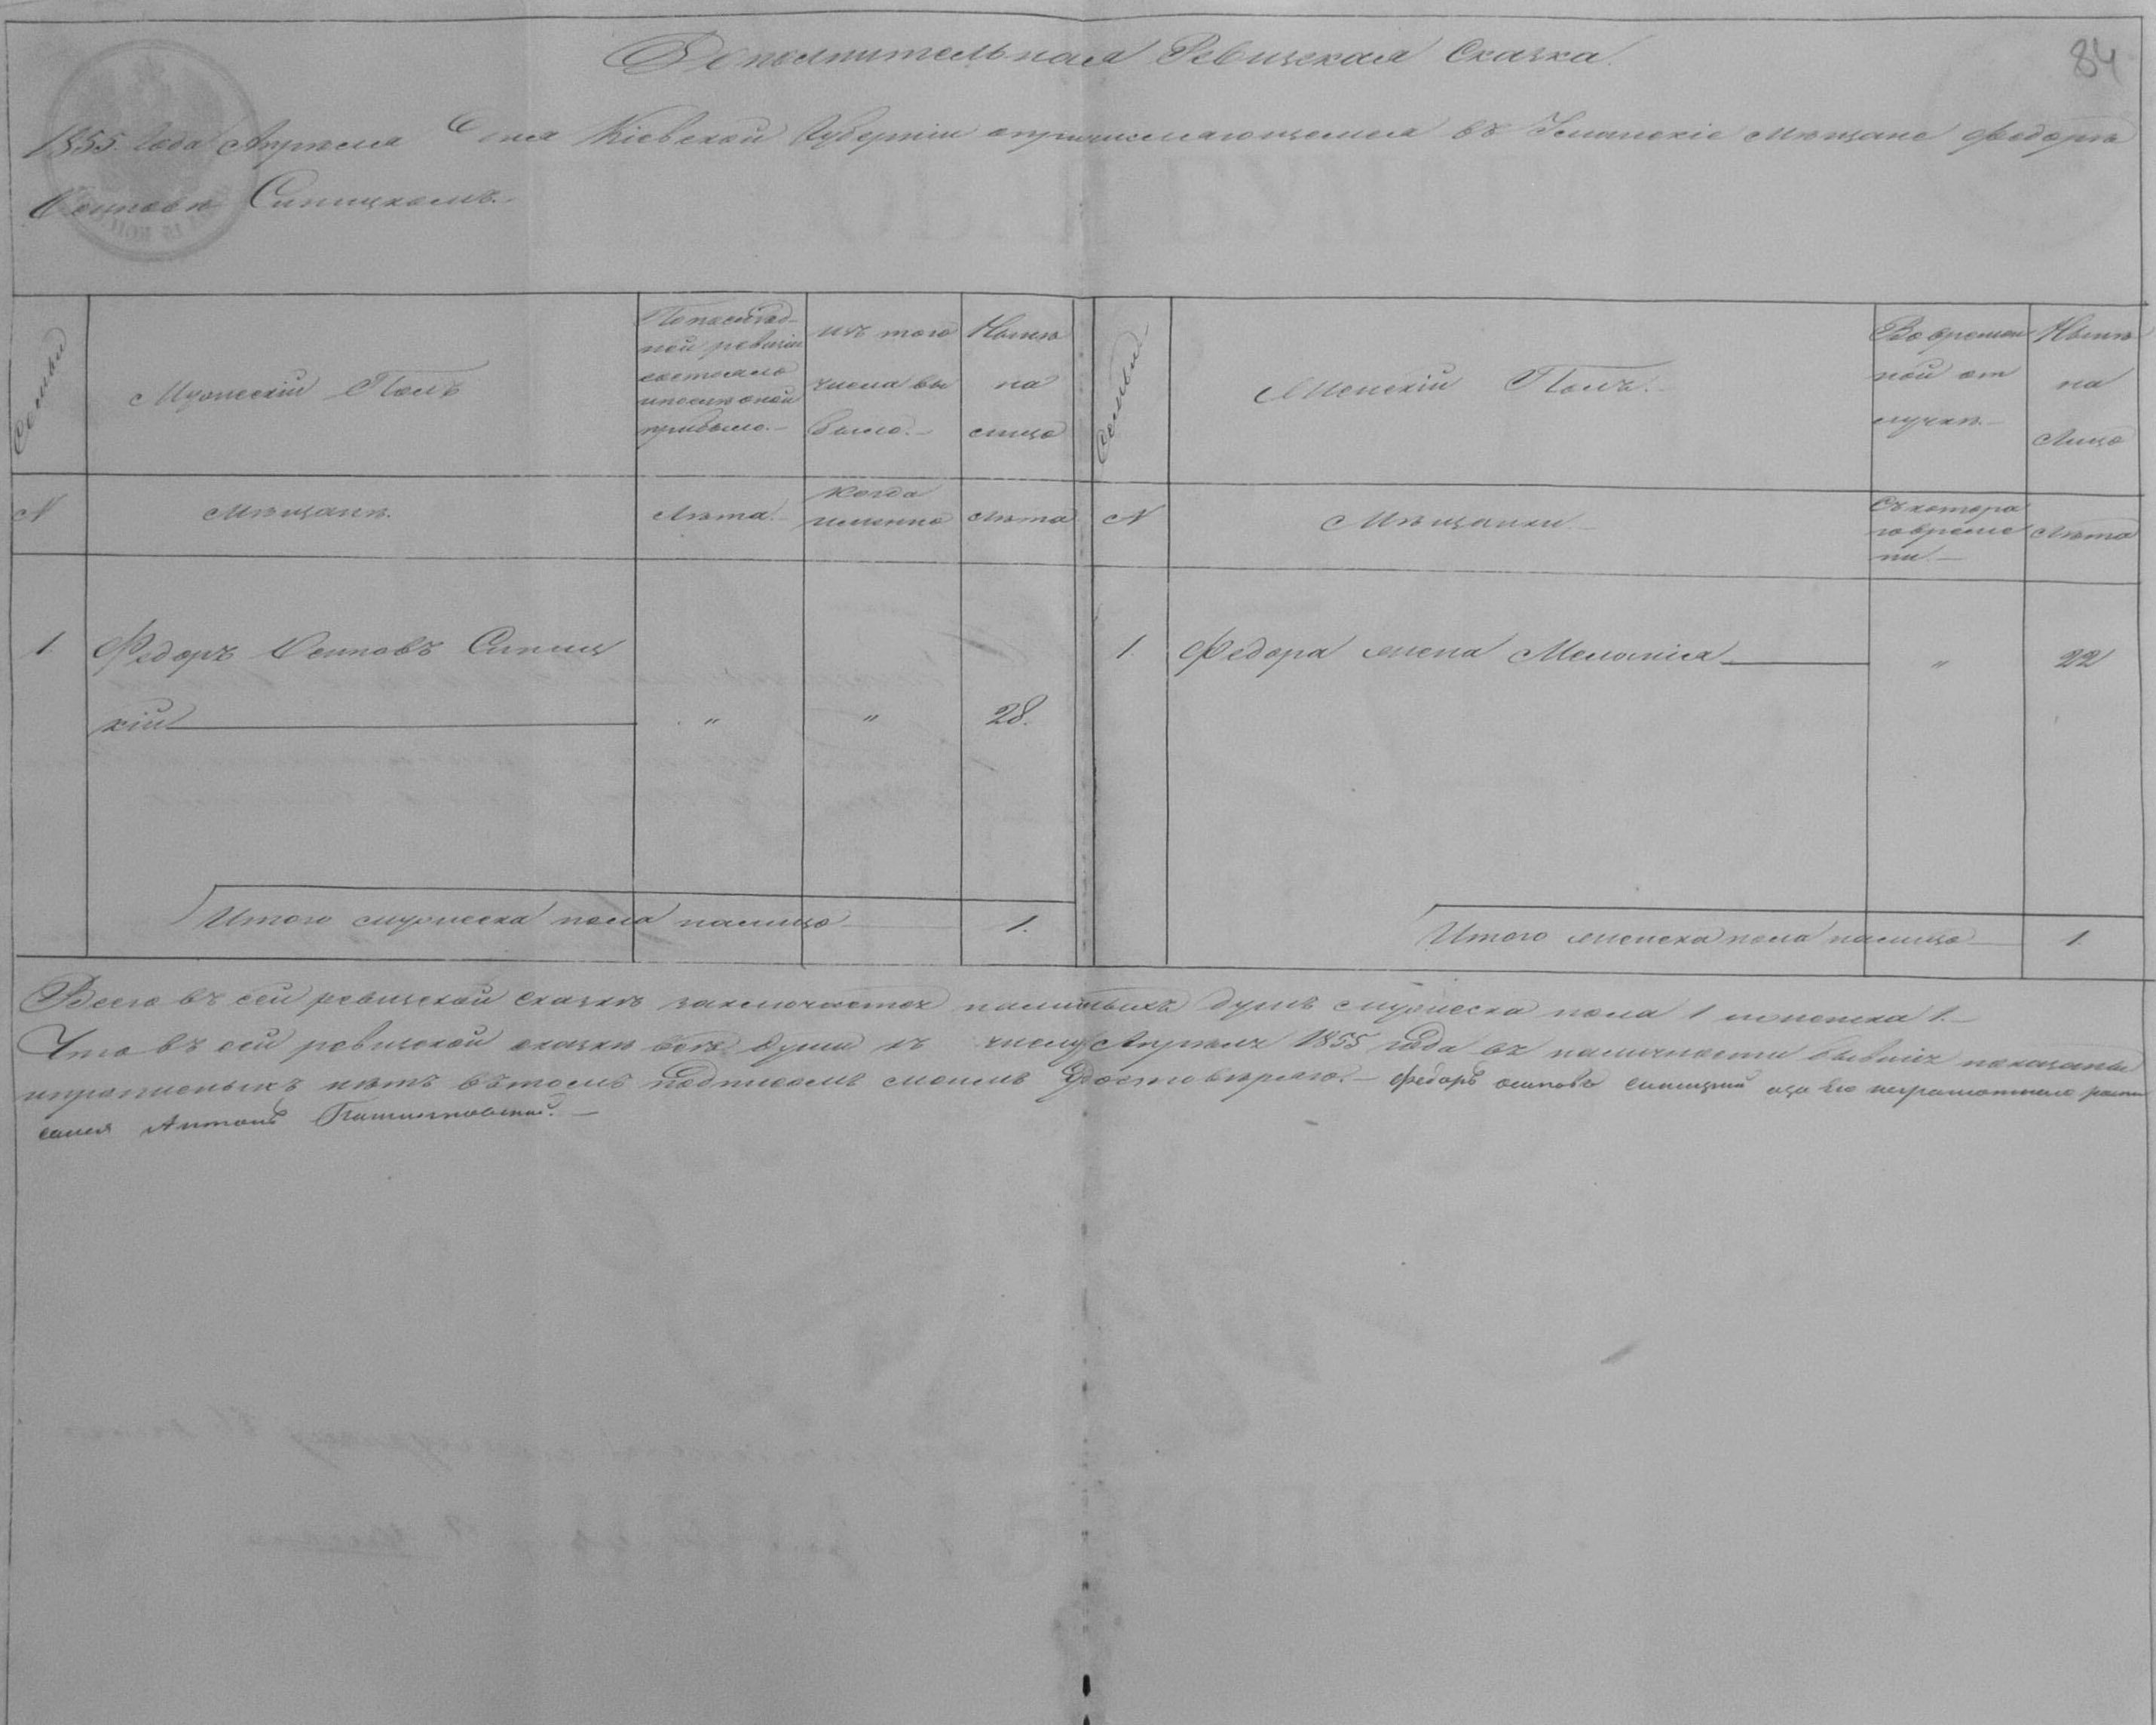 Дополнительная Ревизская Сказка.
84
1855. Года Апреля дня Кіевской Губерніи опричисляющемся въ Уманскіе Мѣщане Федорѣ
Осиповѣ Синицкомъ.
Семьи
Мужескій Полъ
По послѣд-
ней ревизіи
состояло
и послѣ оной
прибыло.-
изъ того
числа вы
было.-
Нынѣ
на
лицо
Семьи
Женскій Полъ.-
Во времен
ной от
лучкѣ.-
Нынѣ
на
Лицо
N
Мѣщане.
Лѣта.-
Когда
именно
Лѣта
N
Мѣщанки.-
Съ котора
го време
ни.-
Лѣта
1 Федоръ Осиповъ Синиц
кій " " 28.
1. Федора жена Меланія " 22
Итого мужеска пола налицо 1.
Итого женска пола налицо 1
Всего въ сей ревизской сказкѣ заключается наличныхъ душъ мужеска пола 1 и женска 1.-
Что въ сей ревизской сказкѣ всѣ души къ числу Апреля 1855 года въ наличности бывшіе показаны
и прописныхъ нѣтъ въ томъ подписомъ моимъ Удостовѣряю.- Федоръ осиповъ синицкий а за его неграмотного распи
сался Антонъ